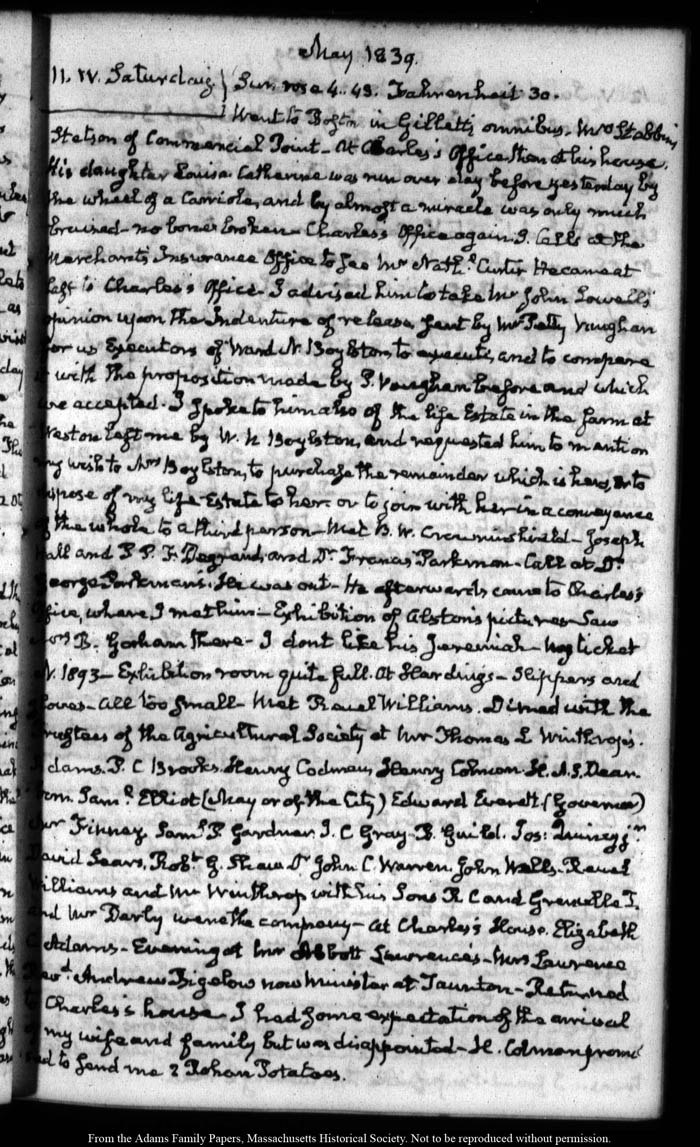 May 1839.
11. IV. Saturday } Sun rose 4.43. Fahrenheit 30.
Went to Boston in Gillett's omnibus. Mrs Stebbins
Stetson of Commercial Point - At Charles's Office then at his house.
His daughter Louisa Catherine was run over day before yesterday by
the wheel of a Carriole, and by almost a miracle was only much
bruised - no bones broken - Charles's Office again I. Calls at the
Merchants Insurance Office to see Mr Nath.l Curtis He came at
last to Charles's Office - I advised him to take Mr John Lowell's
opinion upon the Indenture of release sent by Mr Petty Vaughan
for us Executors of Ward N. Boylston, to execute, and to compare
it with the proposition made by P. Vaughan before and which
we accepted. I spoke to him also of the life Estate in the farm at
Weston left me by W. N. Boylston, and requested him to mention
my wish to Mrs Boylston, to purchase the remainder which is hers, or to
dispose of my life-Estate to her. or to join with her in a conveyance
of the whole to a third person - Met B. W. Crowninshield - Joseph
Hall and P. P. F. Degrand, and Dr Francis Parkman - Call at Dr
George Parkman's. He was out - He afterwards came to Charles's
Office, where I met him - Exhibition of Alston's pictures - Saw
B. Gorham there - I dont like his Jeremiah - My ticket
N. 1893 - Exhibition room quite full. At Harding's - Slippers and
Gloves - All too small - Met Reuel Williams. Dined with the
Trustees of the Agricultural Society at Mr Thomas L Winthrop's.
Adams. P. C Brooks. Henry Codman, Henry Colman. H. A. S. Dear-
born. Sam.l Elliot (Mayor of the City) Edward Everett. (Governor)
Mr Finney. Sam.l P. Gardner J. C Gray - B. Guild. Jos: Quincy jr.
David Sears, Rob.t G. Shaw Dr John C. Warren, John Wells. Reuel
Williams and Mr Winthrop with his Sons R. C and Grenville T.
and Mr Darby were the company - At Charles's House. Elizabeth
C. Adams - Evening at Mr Abbott Lawrence's - Mrs Lawrence
Rev.d Andrew Bigelow now Minister at Taunton - Returned
to Charles's house. I had some expectation of the arrival
of my wife and family but was disappointed - H. Colman promi
sed to send me 2 Rohan Potatoes.
From the Adams Family Papers, Massachusetts Historical Society. Not to be reproduced without permission.